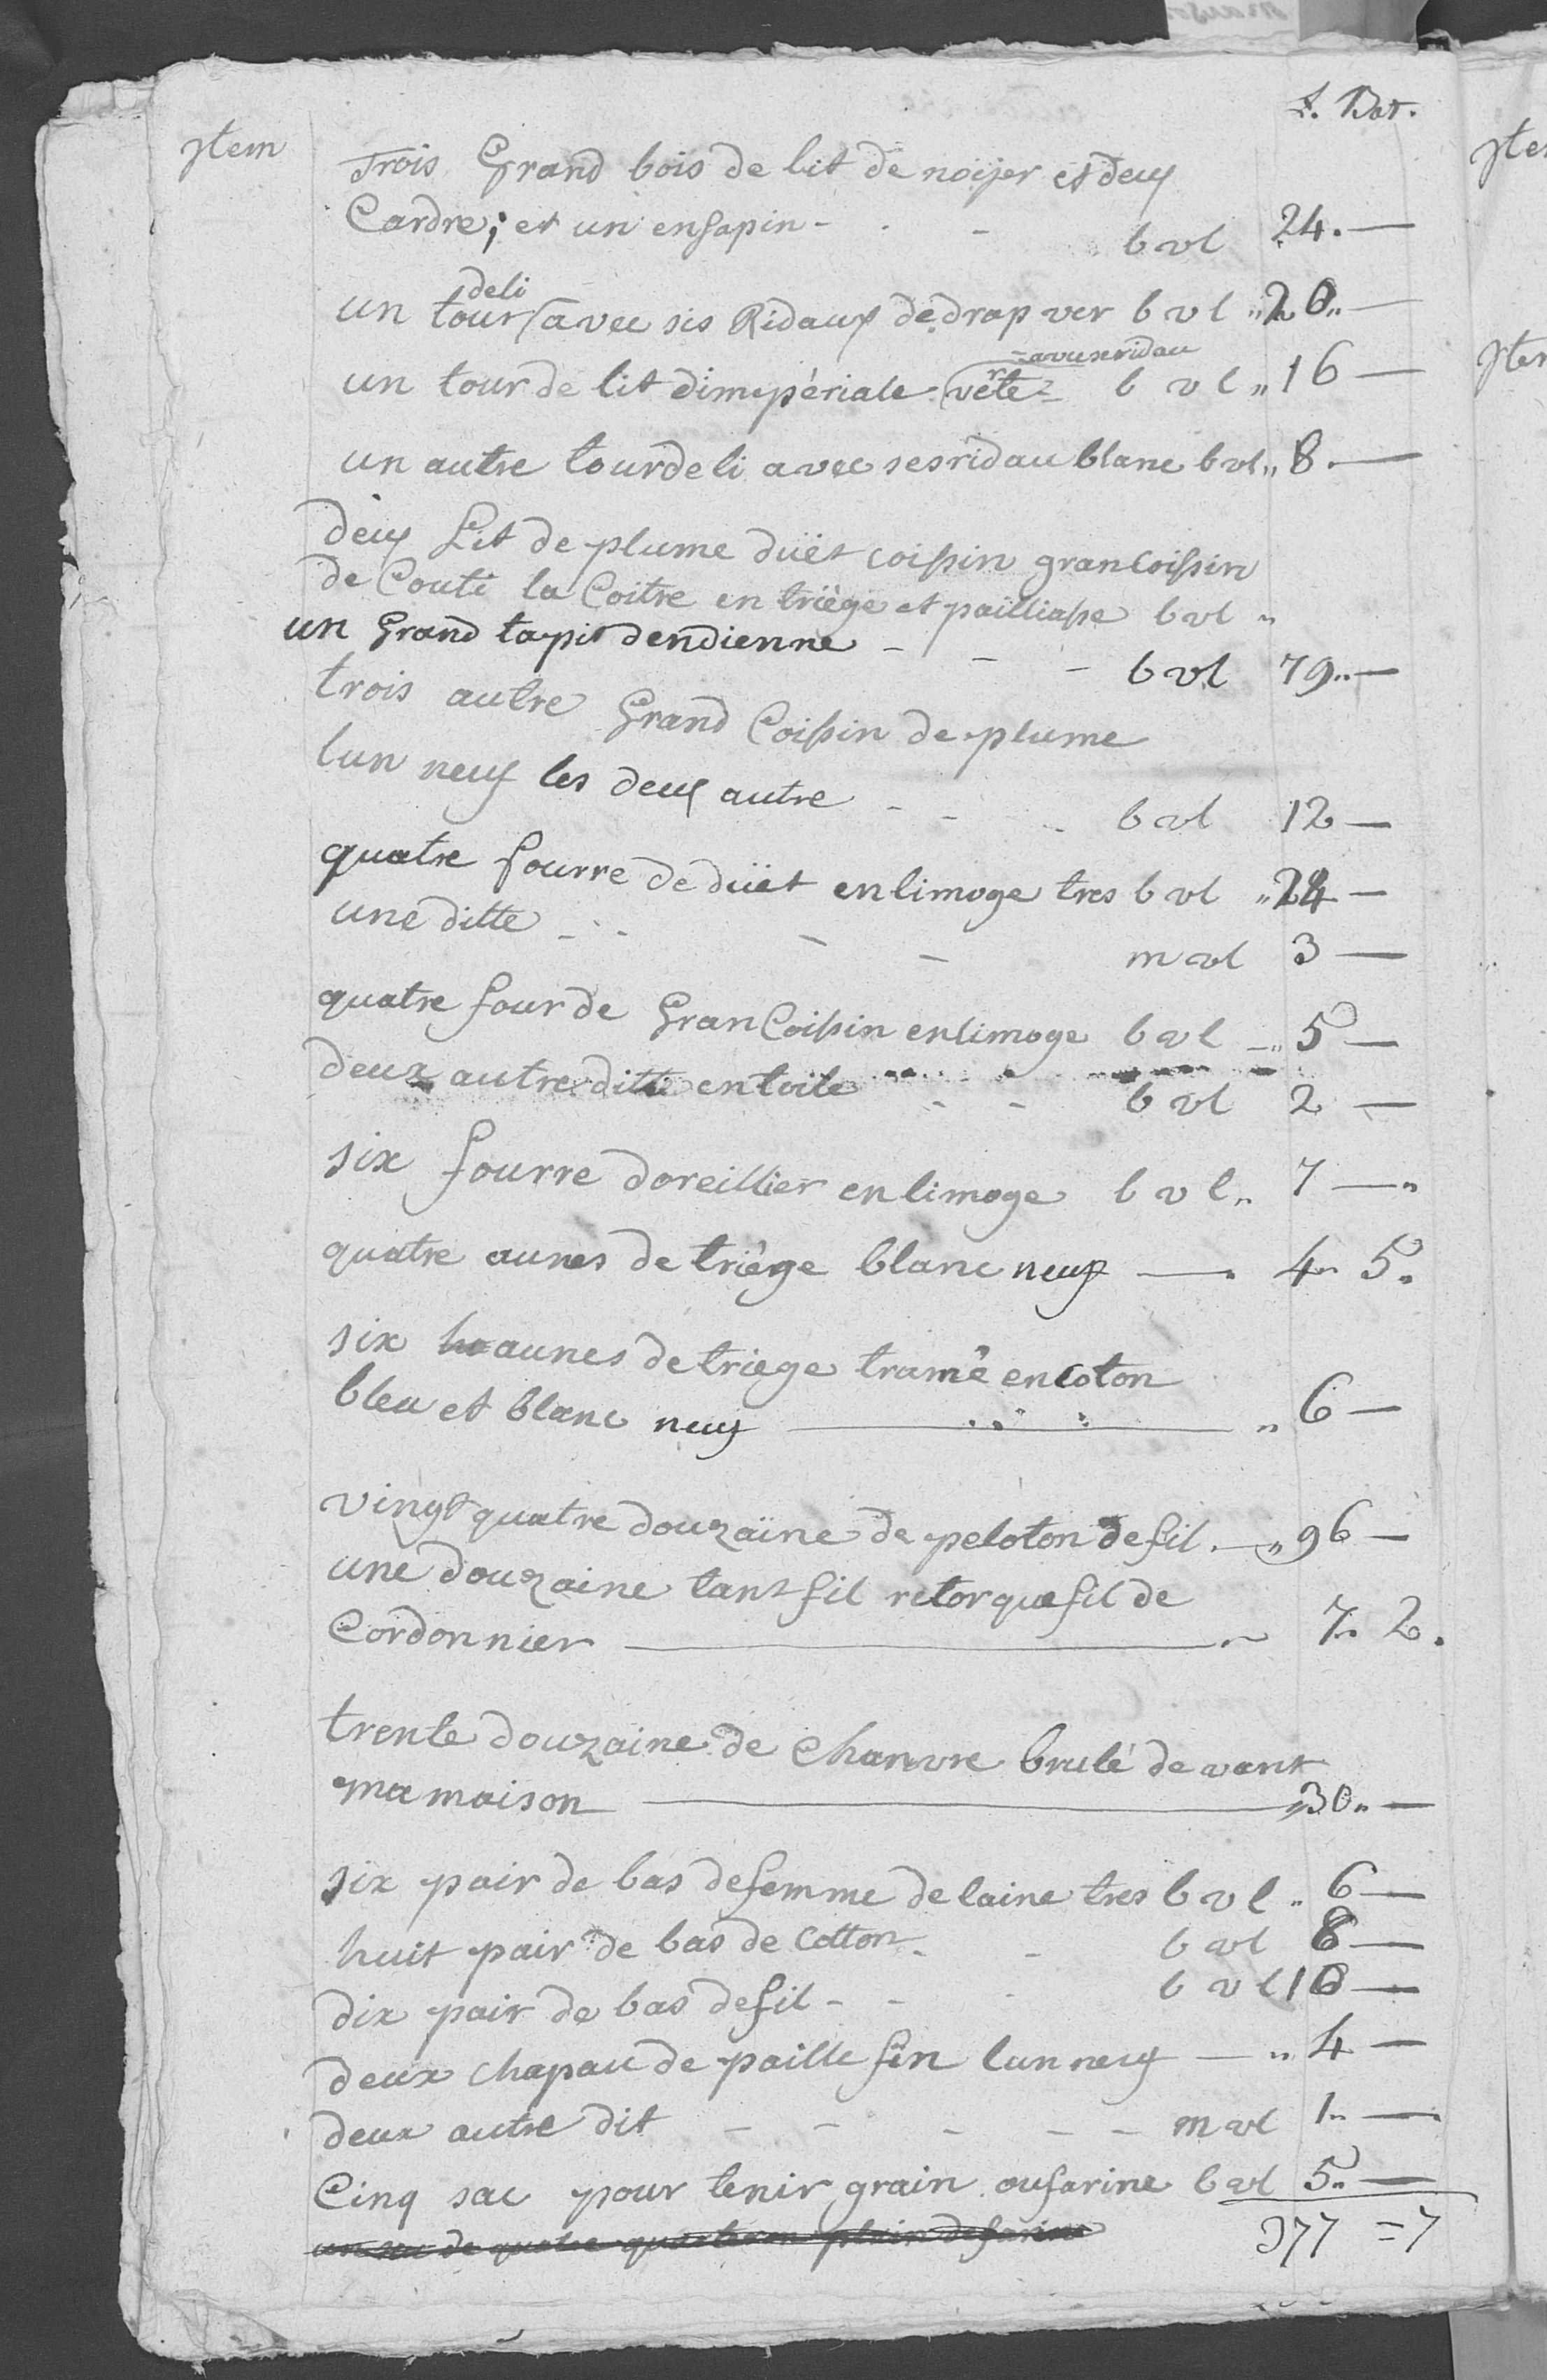 £. Bat.
Jtem Trois Grand bois de lit de noijer et deux
Cardre; et un ensapin - - - b vl 24. —
un tour deli avec sis Ridaux de drap ver b v l „ 20 „ —
un tour de lit dimpèriale verte = avuseridau b v l „ 16 —
un autre tourdeli avec sesridau blanc b vl „ 8. —
deux Lit de plume düet coissin grancoissin
de Couti la Coitre en triège et pailliasse b vl „
un Grand tapit dendienne - - - b vl 79 „ —
trois autre Grand Coissin de plume
lun neuf les deux autre - - - b vl 12 —
quatre fourre de düet enlimoge tres b vl „ 24 —
une ditte - - - - m vl 3 —
quatre four de GranCoissin enlimoge b v l — „ 5 —
deux autre ditte entoile - - b vl 2 —
six fourre doreillier enlimoge b v l „ 7 — „
quatre aunes de triège blanc neuf — 4 „ 5 „
six aunes de triege tramê encoton
bleu et blanc neuf — „ 6 —
vingt quatre douzaine de peloton de fil . — „ 96 —
une douzaine tant fil retorque fil de
Cordonnier — 7 „ 2 .
trente douzaine de Chanvre brulé de vant
ma maison — „ 30 „ —
six pair de bas defemme de laine tres b v l „ 6 —
huit pair de bas de Cotton - - b vl 8 —
dix pair de bas defil - - - b v l 10 —
deux chapau de paille fin lun neuf — „ 4 —
deux autre dit - - - - - m vl 1 „ —
Cinq sac pour tenir grain oufarine b vl 5 „ —
un sac de quatre quarteron plain defarine
377 = 7